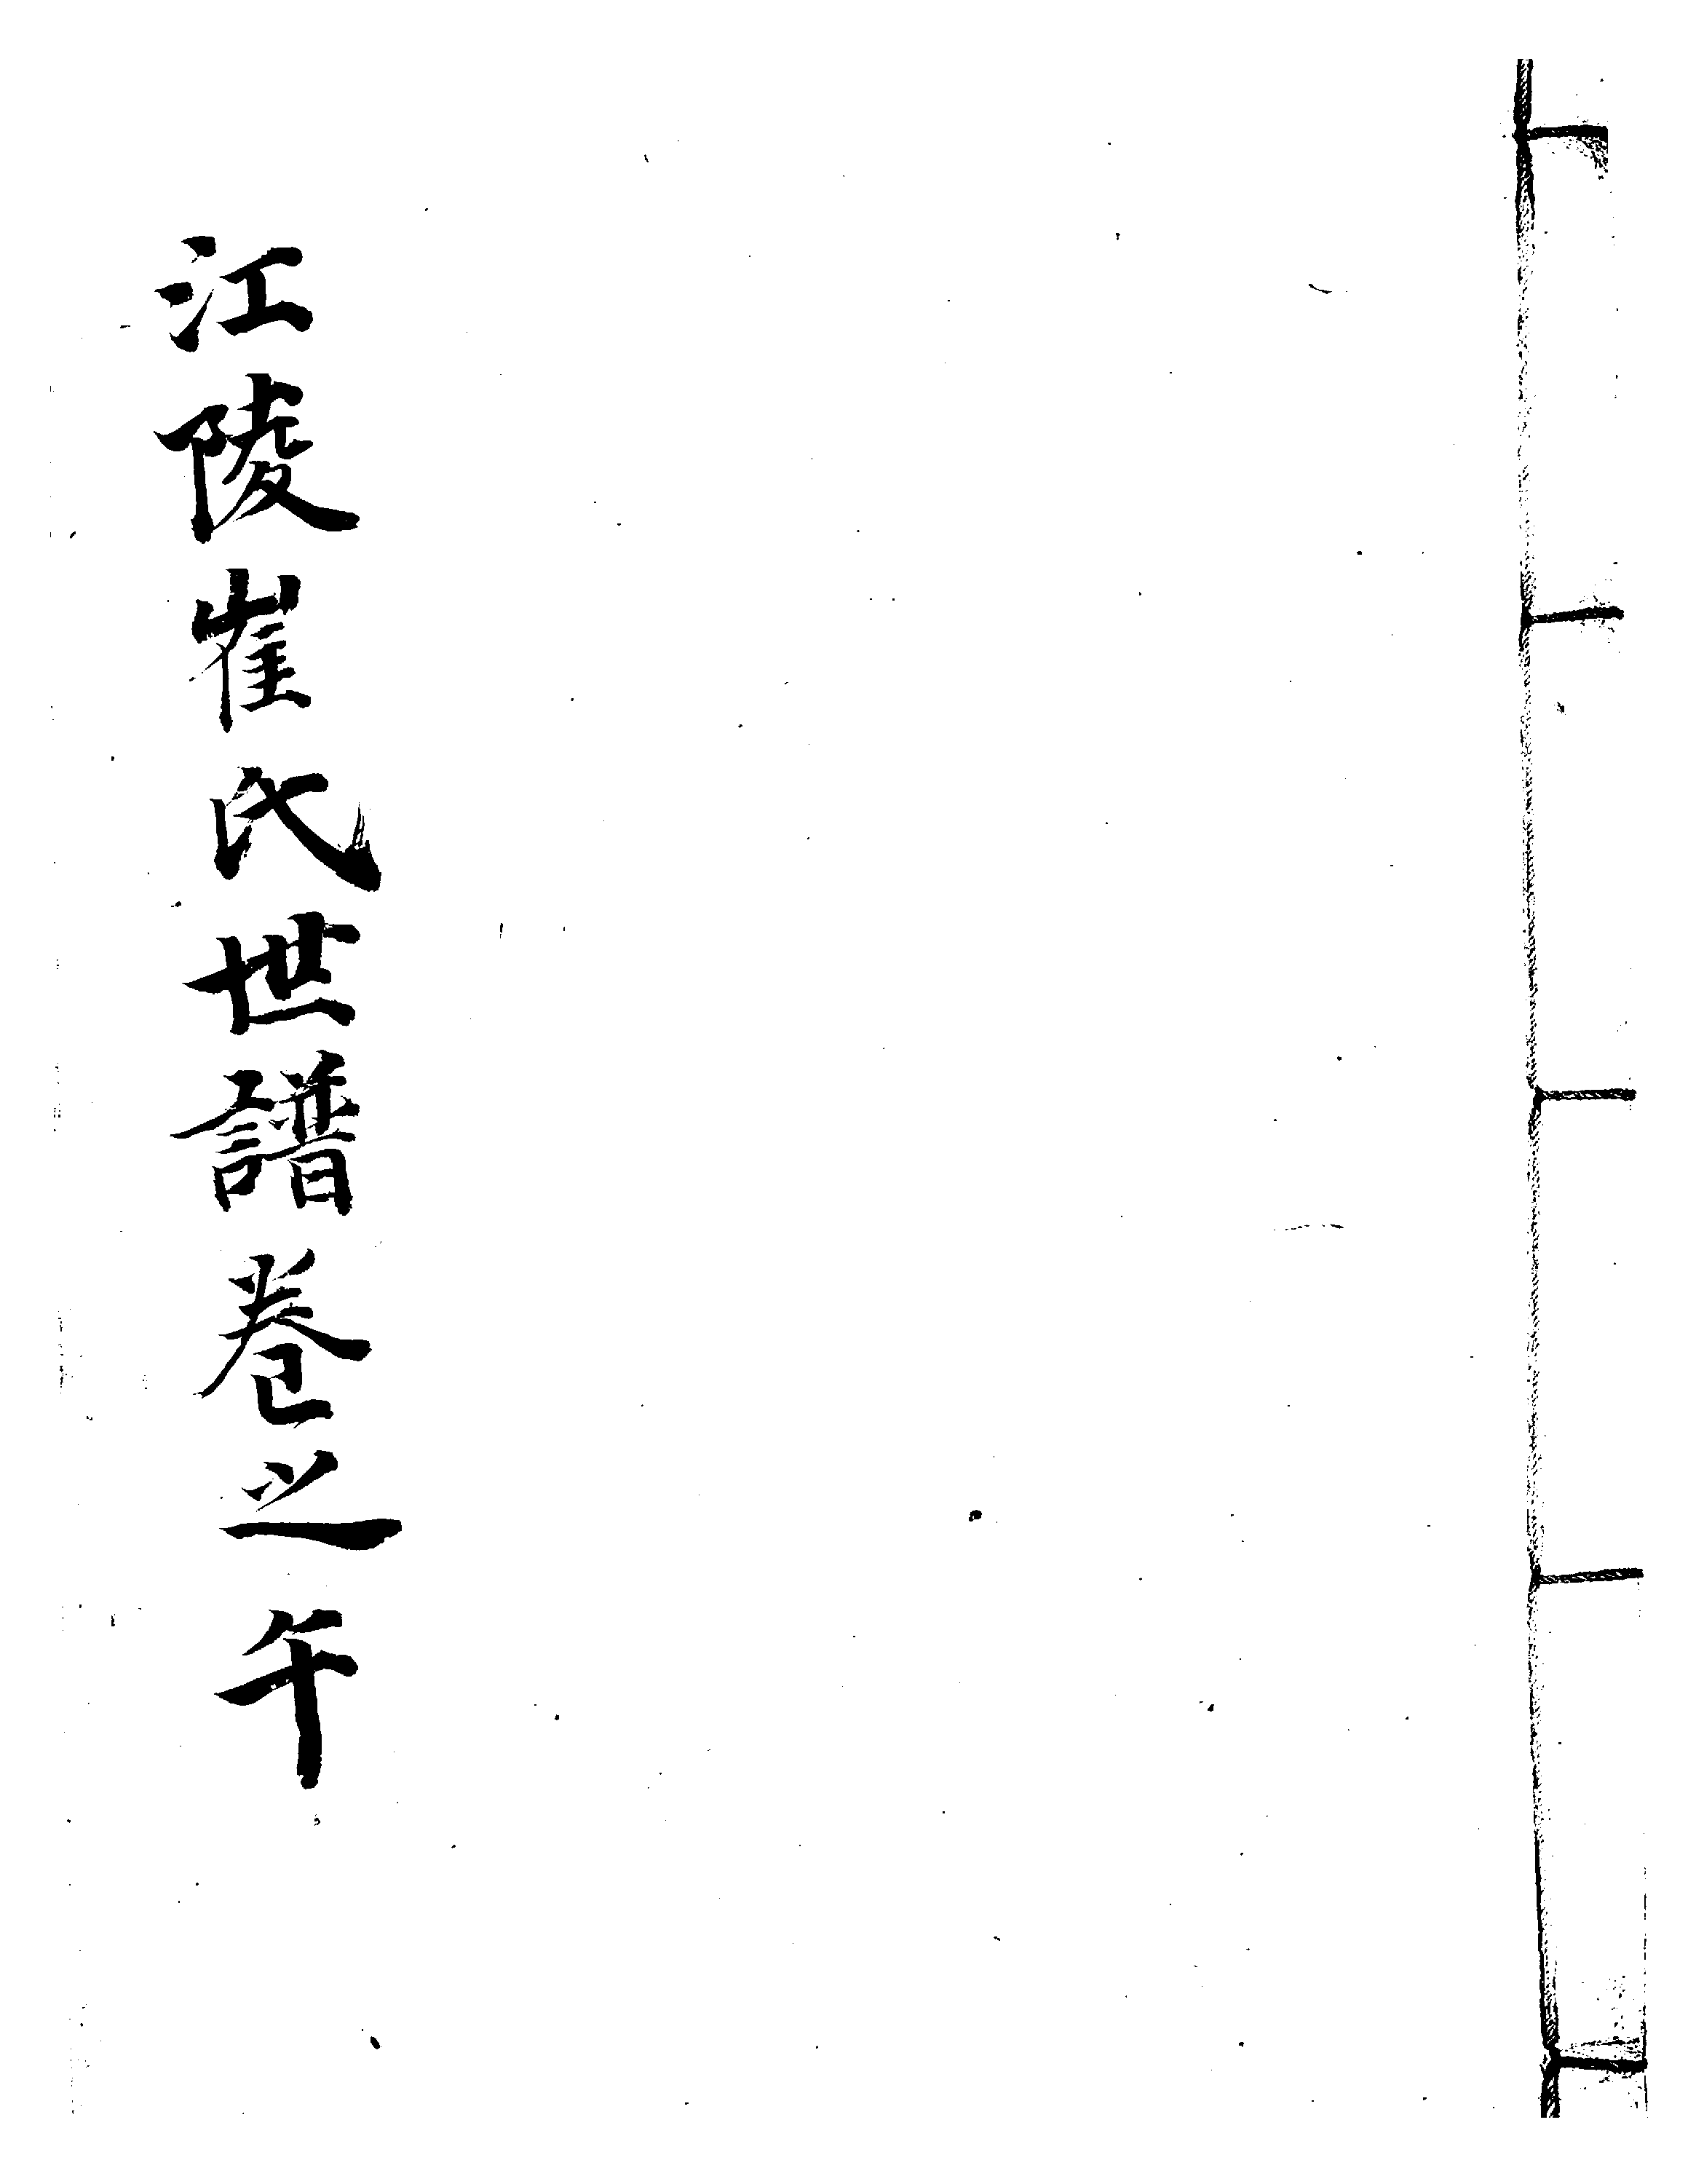 江陵崔氏世譜卷之午